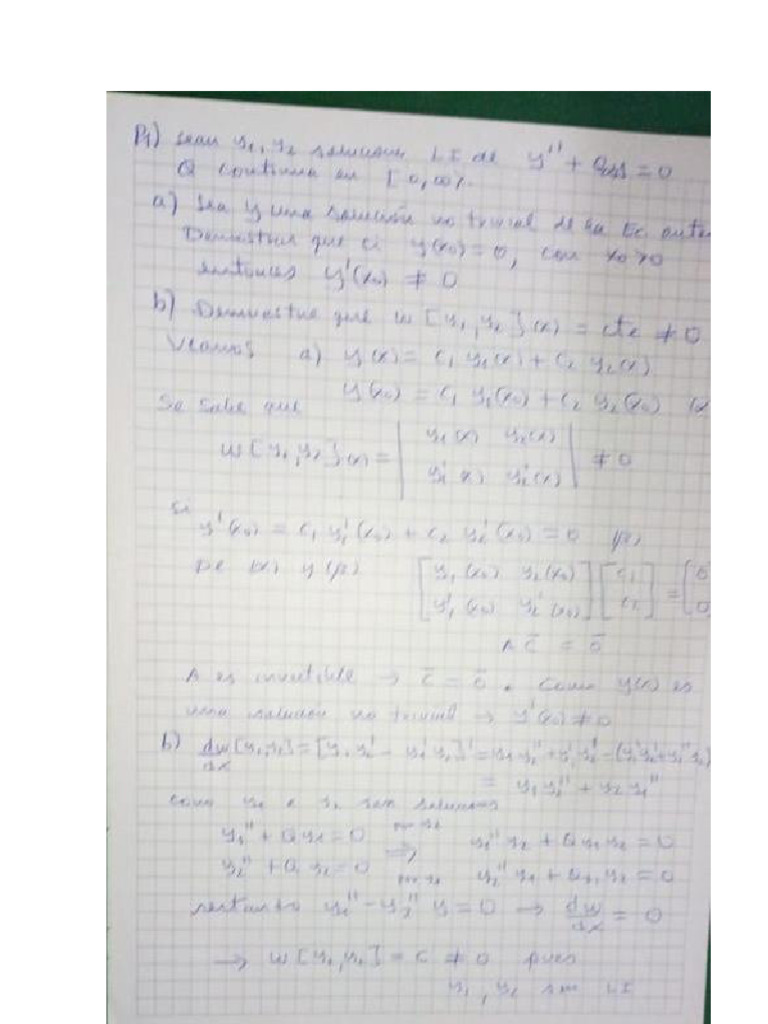 P1) sean y1, y2 solucion LI de y'' + Qy = 0
Q continua en [0,∞).
a) sea y una solución no trivial de la Ec.
Demostrar que si y(x0) = 0, con x0 > 0
entonces y'(x0) ≠ 0
b) Demuestre que w[y1, y2](x) = cte ≠ 0
Veamos a) y(x) = c1 y1(x) + c2 y2(x)
y(x0) = c1 y1(x0) + c2 y2(x0) (α
Se sabe que
w[y1, y2](x) = | y1(x) y2(x) |
| y1'(x) y2'(x) | ≠ 0
Si
y'(x0) = c1 y1'(x0) + c2 y2'(x0) = 0 (β)
De (α) y (β) [ y1(x0) y2(x0) ] [ c1 ] = [ 0
[ y1'(x0) y2'(x0) ] [ c2 ] [ 0
A c̄ = ō
A es invertible → c̄ = ō. Como y(x) es
una solucion no trivial → y'(x0) ≠ 0
b) dw/dx [y1, y2] = [y1 y2' - y1' y2]' = y1 y2'' + y1' y2' - (y1' y2' + y1'' y2)
= y1 y2'' + y2 y1''
como y1 e y2 son solucions
y1'' + Q y1 = 0 por y2 ⟹ y1'' y2 + Q y1 y2 = 0
y2'' + Q y2 = 0 por y1 y2'' y1 + Q y1 y2 = 0
restando y1'' - y2'' y = 0 → dw/dx = 0
→ w[y1, y2] = c ≠ 0 pues
y1, y2 son LI